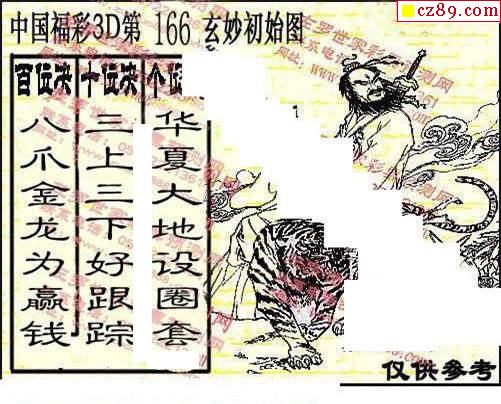 cz89.com
中国福彩3D第 166 玄妙初始图
百位决 十位决 个位
八爪金龙为赢钱
三上三下好跟踪
华夏大地设圈套
仅供参考